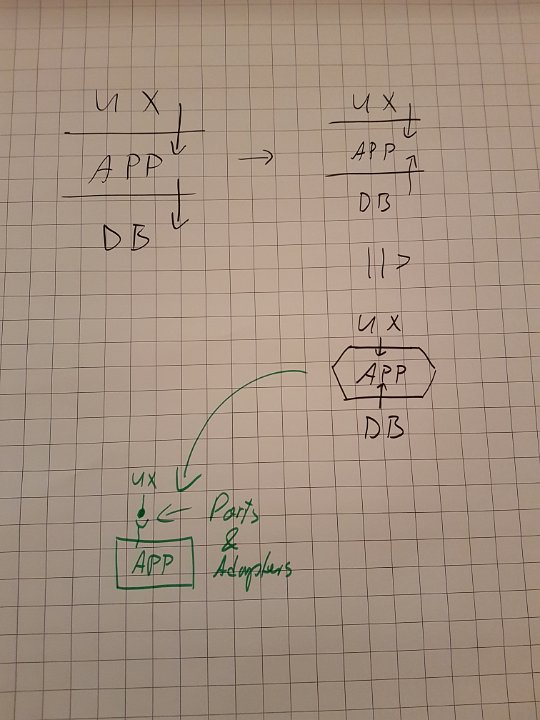 UX
APP
DB
UX
APP
DB
UX
APP
DB
UX
Ports
&
Adapters
APP